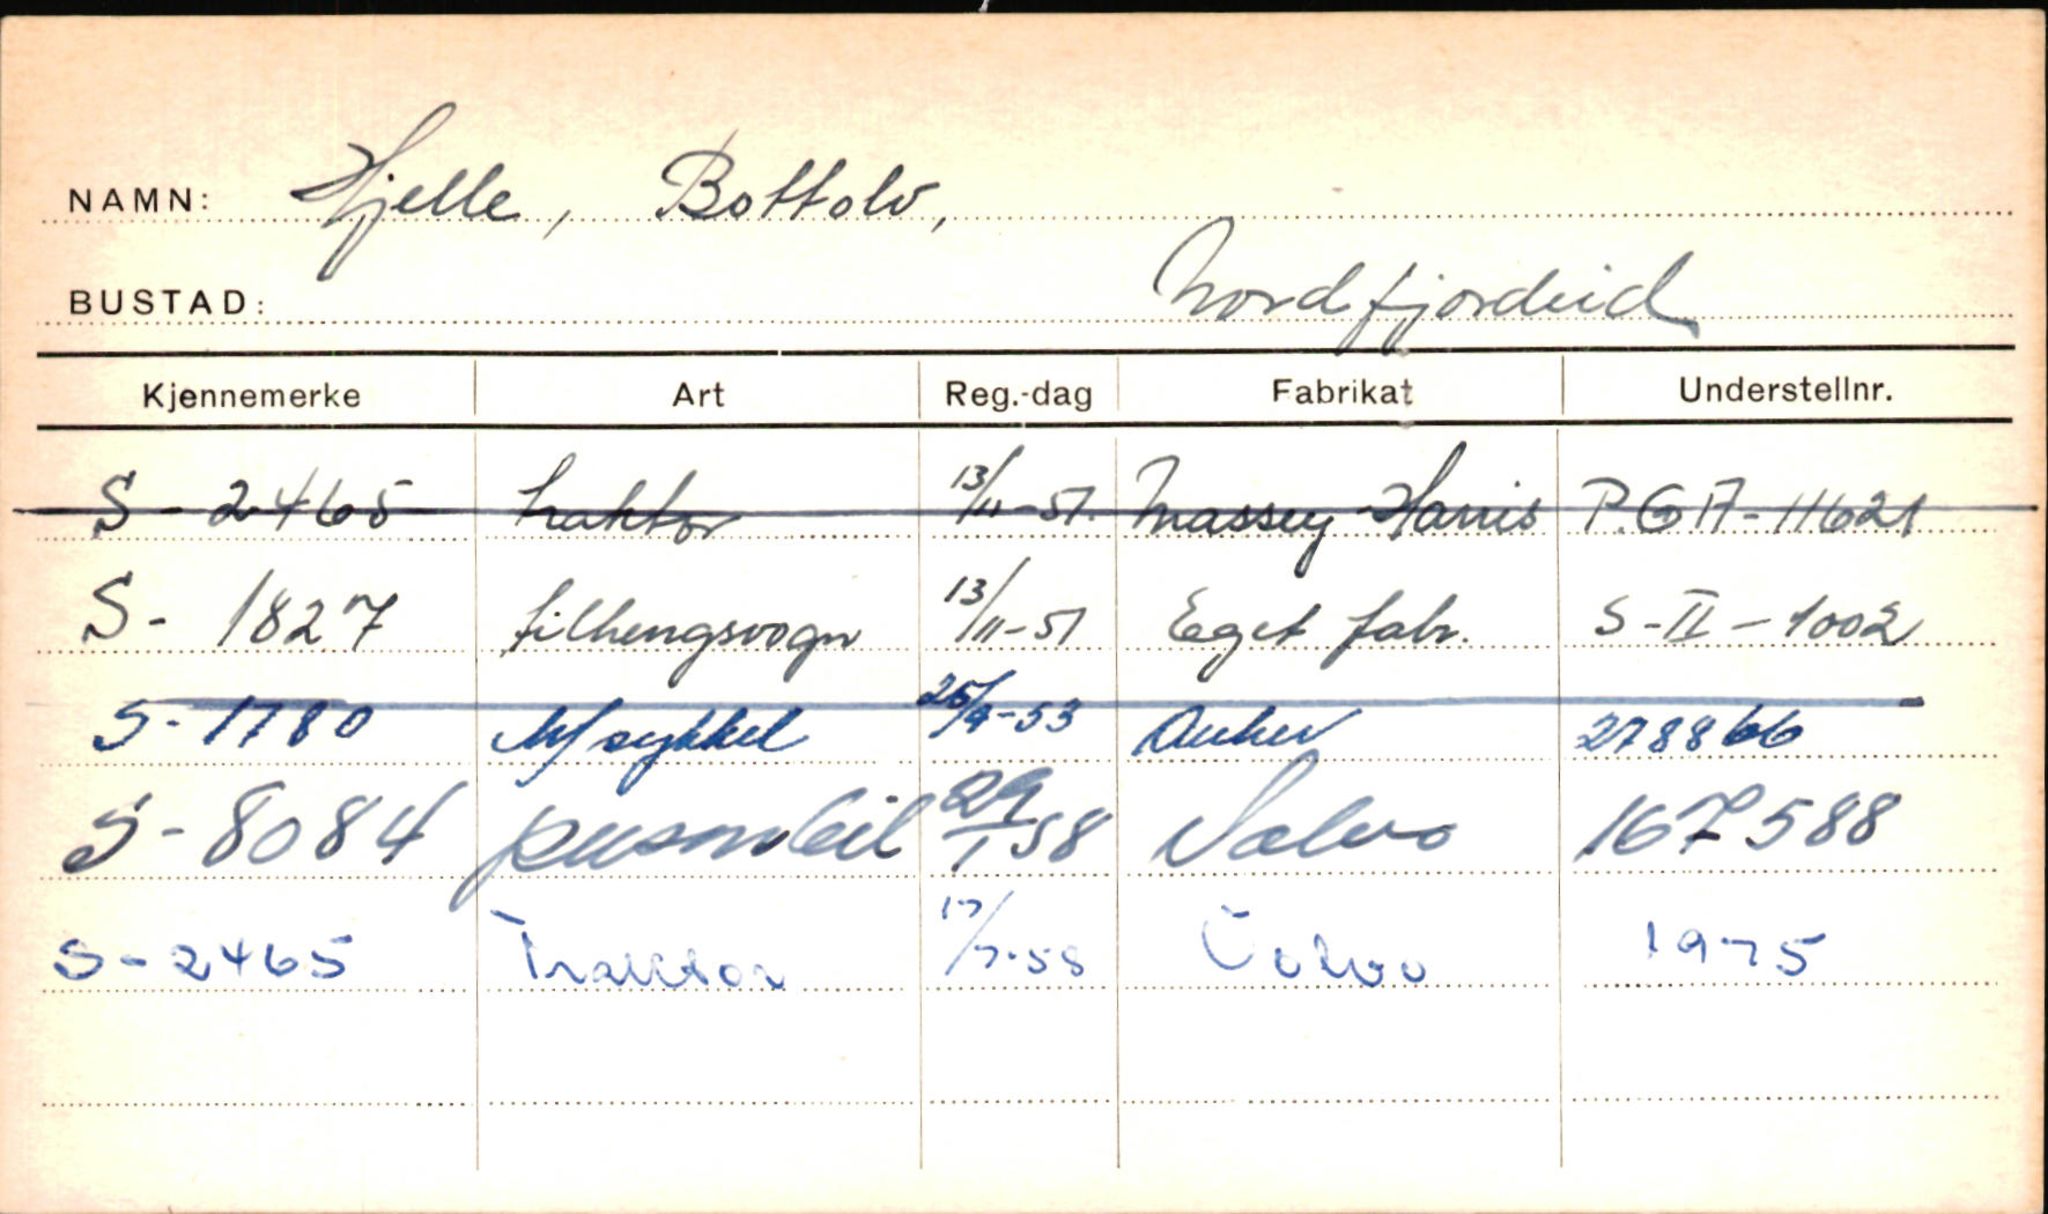 NAMN: Hjelle, Bottolv,
BUSTAD: Nordfjordeid
Kjennemerke Art Reg.-dag Fabrikat Understellnr.
S - 2465 traktor 13/11-51. Massey-Harris P.GA-11621
S - 1827 tilhengsvogn 13/11-51 Eget fabr. S-II-1002
S - 1780 M/sykkel 25/9-53 278866
S - 8084 personbil 29/1 58 Volvo 167588
S - 2465 Traktor 17/7-58 Volvo 1975